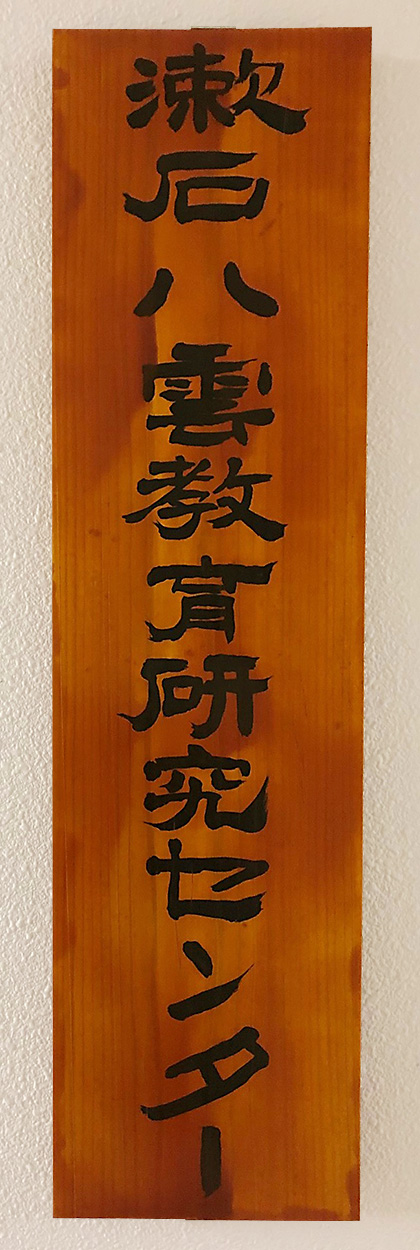 漱石八雲教育研究センター